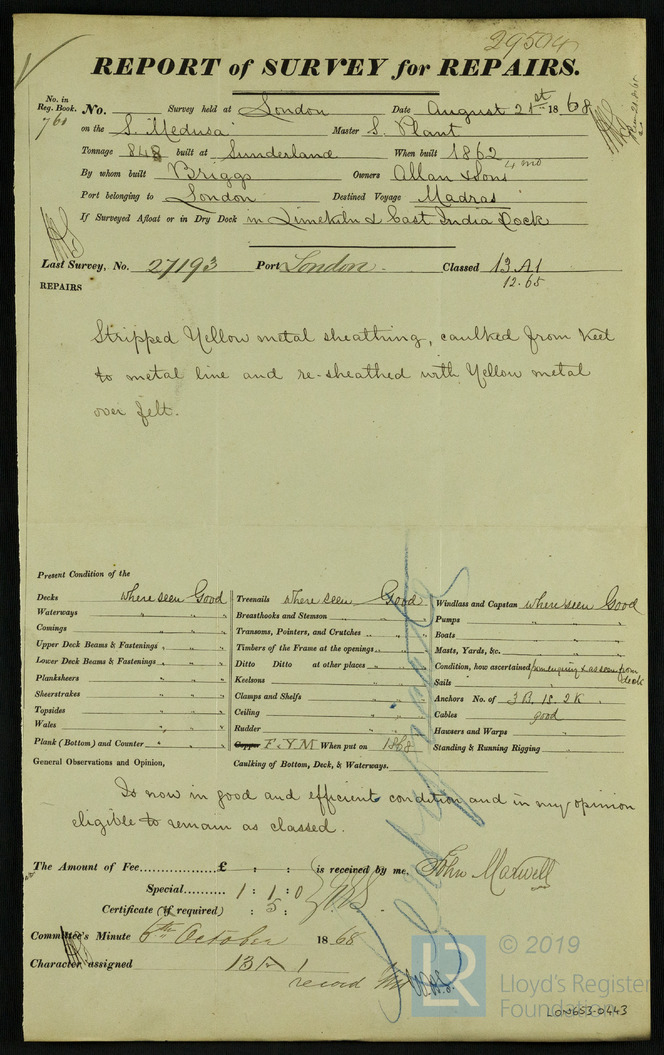 29504
REPORT of SURVEY for REPAIRS.
No. in Reg. Book. No. Survey held at London Date August 21st 1868
760 on the S. Medusa Master S. Plant
Tonnage 848 built at Sunderland When built 1862 4 mo
By whom built Briggs Owners Allan & Sons
Port belonging to London Destined Voyage Madras
If Surveyed Afloat or in Dry Dock in Limekiln & East India Dock
Last Survey, No. 27193 Port London. Classed 13 A1
12.65
REPAIRS
Stripped Yellow metal sheathing, caulked from keel
to metal line and re-sheathed with Yellow metal
over felt.
Present Condition of the
Decks where seen Good
Waterways " " "
Comings " " "
Upper Deck Beams & Fastenings " " "
Lower Deck Beams & Fastenings " " "
Planksheers " " "
Sheerstrakes " " "
Topsides " " "
Wales " " "
Plank (Bottom) and Counter " " "
General Observations and Opinion,
Treenails where seen Good
Breasthooks and Stemson " " "
Transoms, Pointers, and Crutches " " "
Timbers of the Frame at the openings " " "
Ditto Ditto at other places " " "
Keelsons " " "
Clamps and Shelfs " " "
Ceiling " " "
Rudder " " "
Copper F.Y.M When put on 1868
Caulking of Bottom, Deck, & Waterways.
Windlass and Capstan where seen Good
Pumps " " "
Boats " " "
Masts, Yards, &c. " " "
Condition, how ascertained from enquiry & as seen from deck
Sails " "
Anchors No. of 3 B. 1S. 2K
Cables good
Hawsers and Warps " "
Standing & Running Rigging " "
Is now in good and efficient condition and in my opinion
eligible to remain as classed.
The Amount of Fee £ : : is received by me, John Maxwell
Special 1 : 1 : 0
Certificate (if required) : 5 :
Committee's Minute 6th October 1868
Character assigned 13 A 1
record
© 2019
LR
Lloyd's Register
Foundation
LON653-0443